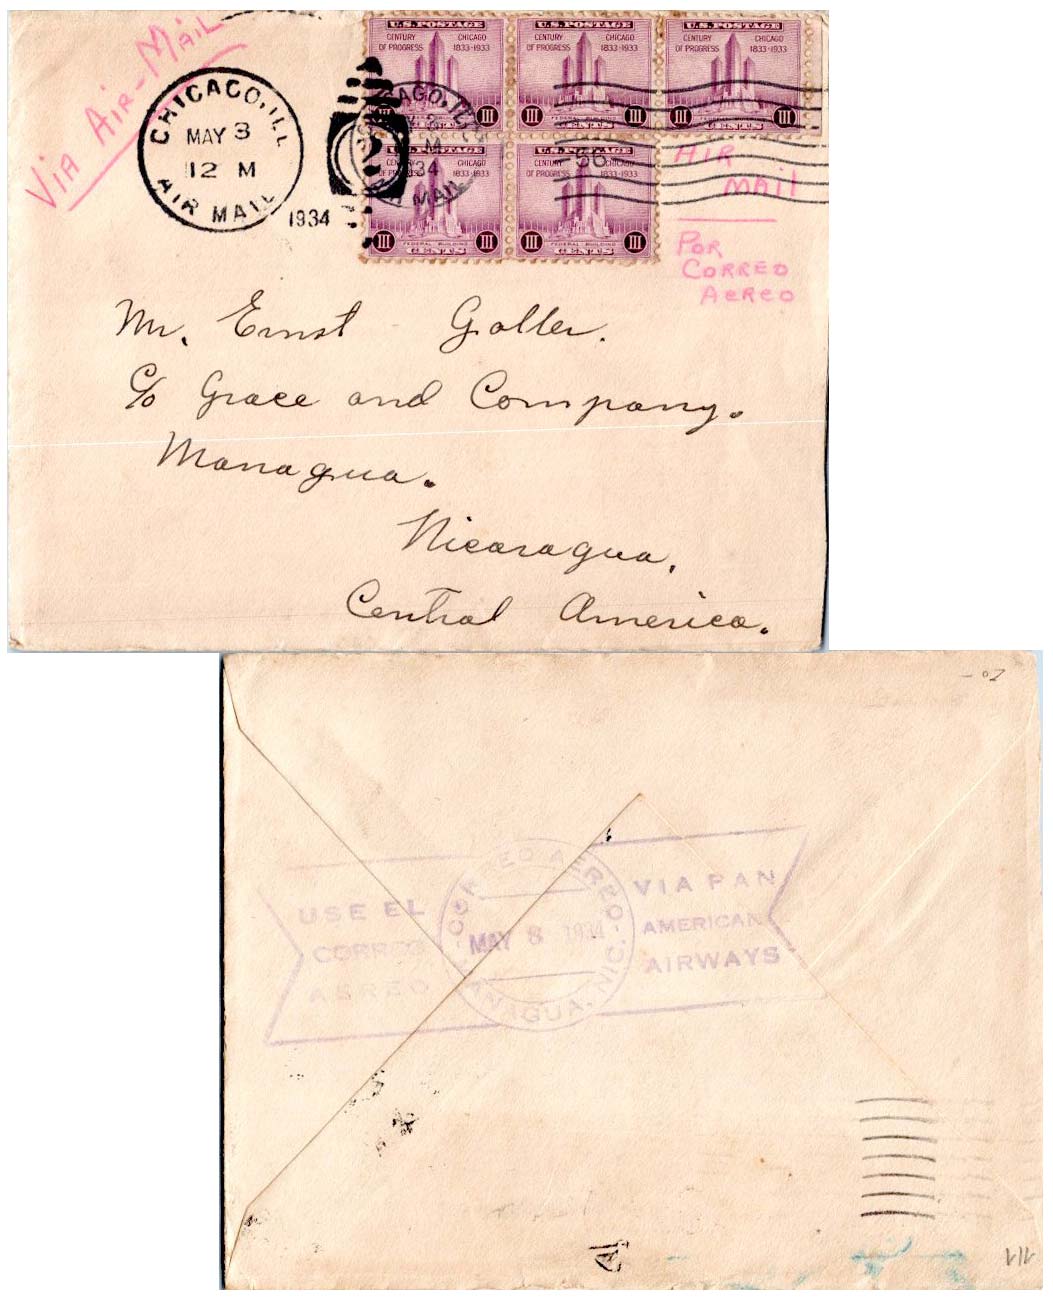 Via Air-Mail
CHICAGO, ILL.
MAY 3
12 M
AIR MAIL
1934
U.S. POSTAGE U.S. POSTAGE U.S. POSTAGE
CENTURY OF PROGRESS CHICAGO 1833-1933
CENTURY OF PROGRESS CHICAGO 1833-1933
CENTURY OF PROGRESS CHICAGO 1833-1933
III III III III III III
U.S. POSTAGE U.S. POSTAGE
CENTURY OF PROGRESS CHICAGO 1833-1933
CENTURY OF PROGRESS CHICAGO 1833-1933
FEDERAL BUILDING FEDERAL BUILDING
III CENTS III III CENTS III
AIR
MAIL
POR
CORREO
AEREO
Mr. Ernst Goller.
C/o Grace and Company.
Managua.
Nicaragua.
Central America.
USE EL
CORREO
AEREO
CORREO AEREO
MAY 8 1934
MANAGUA, NIC.
VIA PAN
AMERICAN
AIRWAYS